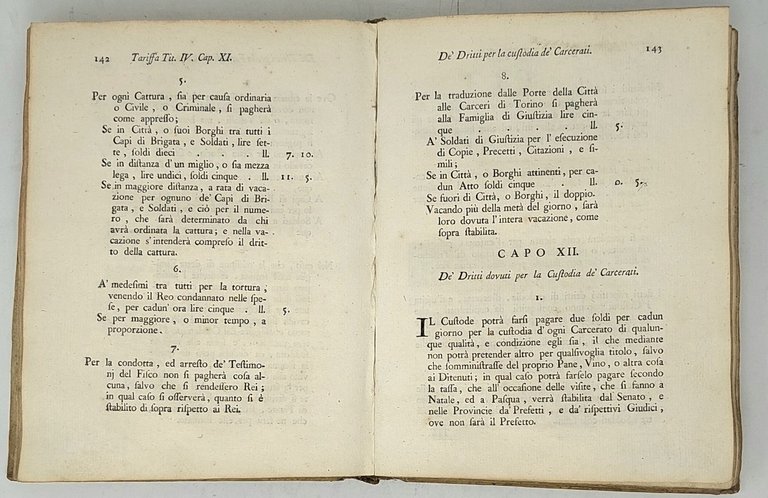 142 Tariffa Tit. IV. Cap. XI.
5.
Per ogni Cattura, sia per causa ordinaria
o Civile, o Criminale, si pagherà
come appresso;
Se in Città, o suoi Borghi tra tutti i
Capi di Brigata, e Soldati, lire set-
te, soldi dieci . . . . ll. 7. 10.
Se in distanza d'un miglio, o sia mezza
lega, lire undici, soldi cinque . ll. 11. 5.
Se in maggiore distanza, a rata di vaca-
zione per ognuno de' Capi di Bri-
gata, e Soldati, e ciò per il nume-
ro, che sarà determinato da chi
avrà ordinata la cattura; e nella va-
cazione s'intenderà compreso il drit-
to della cattura.
6.
A' medesimi tra tutti per la tortura,
venendo il Reo condannato nelle spe-
se, per cadun' ora lire cinque . ll. 5.
Se per maggiore, o minor tempo, a
proporzione.
7.
Per la condotta, ed arresto de' Testimo-
nj del Fisco non si pagherà cosa al-
cuna, salvo che si rendessero Rei;
in qual caso si osserverà, quanto si è
stabilito di sopra rispetto ai Rei.
De' Dritti per la custodia de' Carcerati. 143
8.
Per la traduzione dalle Porte della Città
alle Carceri di Torino si pagherà
alla Famiglia di Giustizia lire cin-
que . . . . . ll. 5.
A' Soldati di Giustizia per l'esecuzione
di Copie, Precetti, Citazioni, e si-
mili;
Se in Città, o Borghi attinenti, per ca-
dun Atto soldi cinque . ll. 0. 5.
Se fuori di Città, o Borghi, il doppio.
Vacando più della metà del giorno, sarà
loro dovuta l'intera vacazione, come
sopra stabilita.
CAPO XII.
De' Dritti dovuti per la Custodia de' Carcerati.
1.
IL Custode potrà farsi pagare due soldi per cadun
giorno per la custodia d'ogni Carcerato di qualun-
que qualità, e condizione egli sia, il che mediante
non potrà pretender altro per qualsivoglia titolo, salvo
che somministrasse del proprio Pane, Vino, o altra cosa
ai Ditenuti; in qual caso potrà farselo pagare secondo
la tassa, che all' occasione delle visite, che si fanno a
Natale, ed a Pasqua, verrà stabilita dal Senato, e
nelle Provincie da' Prefetti, e da' rispettivi Giudici,
ove non sarà il Prefetto.